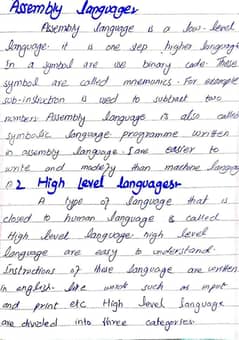 Assembly languages
Assembly language is a low-level
language. it is one step higher language
In a symbol are use binary code. These
symbol are called mnemonics. For example
sub-instruction is used to subtract two
numbers Assembly language is also called
symbolic language. programme written
in assembly language. are easier to
write and modify than machine language
Q2 High Level languages-
A type of language that is
closed to human language is called
High level language. high level
language are easy to understand.
Instructions of these language are written
in english. like work such as input
and print etc High level language
are divided into three categories.